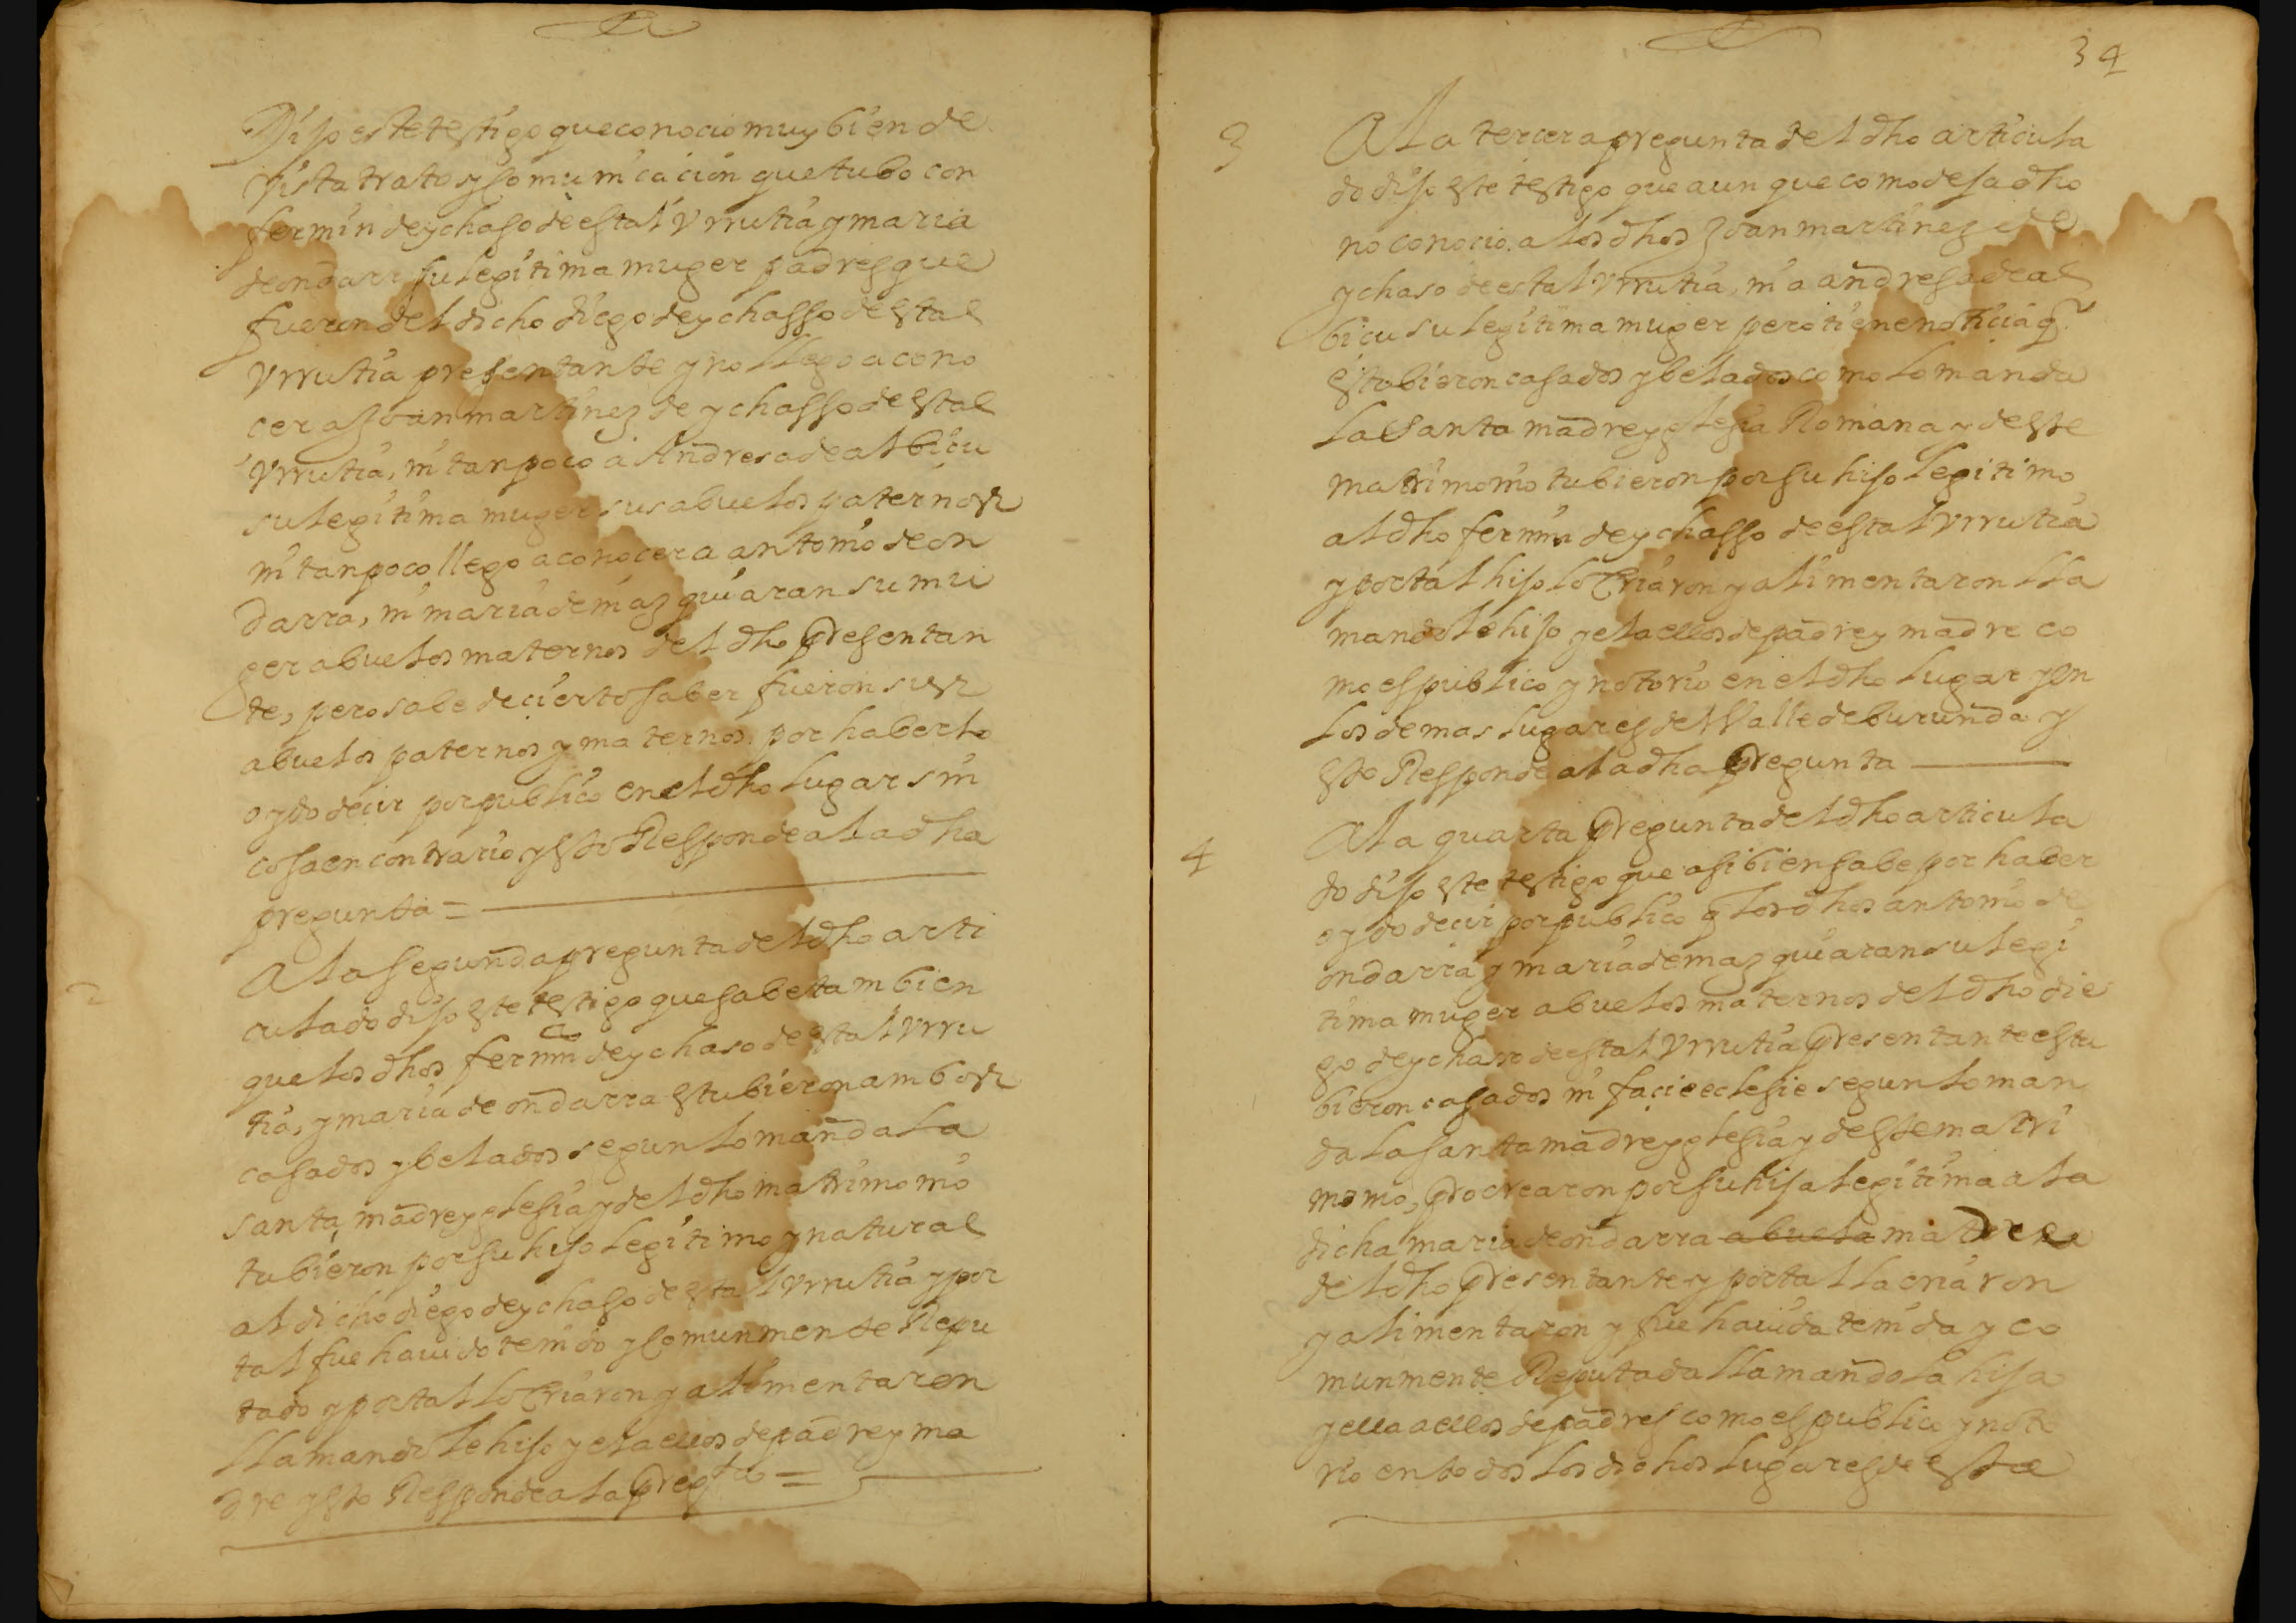 Dijo este testigo que conocio muy bien de
vista trato y comunicacion que tubo con
fermin de ychaso de estal Vrrutia y maria
de ondarr su legitima muger padres que
fueron del dicho diego de ychasso de estal
Vrrutia presentante y no llego a cono
cer a Joan martinez de ychasso de estal
Vrrutia, ni tanpoco a Andresa de albicu
su legitima muger sus abuelos paternos
ni tanpoco llego a conocer a antonio de on
darra, ni maria de mazquiaran su mu
ger abuelos maternos del dho Presentan
te, pero sabe de cierto saber fueron sus
abuelos paternos y maternos por haberlo
oydo decir por publico en el dho lugar sin
cosa en contrario y esto Responde a la dha
pregunta =
2
A la segunda pregunta del dho arti
culado dijo este testigo que sabe tambien
que los dhos fermin de ychaso de estal Vrru
tia, y maria de ondarra estubieron ambos
casados y belados segun lo manda la
santa madre yglesia y del dho matrimonio
tubieron por su hijo legitimo y natural
al dicho diego de ychaso de estal Vrrutia y por
tal fue hauido tenido y Comunmente Repu
tado y por tal lo Criaron y alimentaron
llamandole hijo y el a ellos de padre y ma
dre y esto Responde a la Pregta =
34
3
A la tercera pregunta del dho articula
do dijo este testigo que aunque como deja dho
no conocio a los dhos Joan martinez de
ychaso de estal Vrrutia, ni a andresa de al
bicu su legitima muger pero tiene noticia q
estubieron casados y belados como lo manda
la Santa madre yglesia Romana y de este
matrimonio tubieron por su hijo legitimo
al dho fermin de ychasso de estal Vrrutia
y por tal hijo lo Criaron y alimentaron lla
mandole hijo y el a ellos de padre y madre co
mo es publico y notorio en el dho lugar y en
los demas lugares del Valle de burunda y
esto Responde a la dha Pregunta
4
A la quarta Pregunta del dho articula
do dijo este testigo que asi bien sabe por haber
oydo decir por publico q los dhos antonio de
ondarra y maria de mazquiaran su legi
tima muger abuelos maternos del dho die
go de ychasso de estal Vrrutia Presentante estu
bieron casados in facie eclesie segun lo man
da la santa madre yglesia y de este matri
monio, Procrearon por su hija legitima a la
dicha maria de ondarra abuela madre
del dho Presentante y por tal la criaron
y alimentaron y fue hauida tenida y co
munmente Reputada llamandola hija
y ella a ellos de padres como es publico y noto
rio en todos los dichos lugares de esta